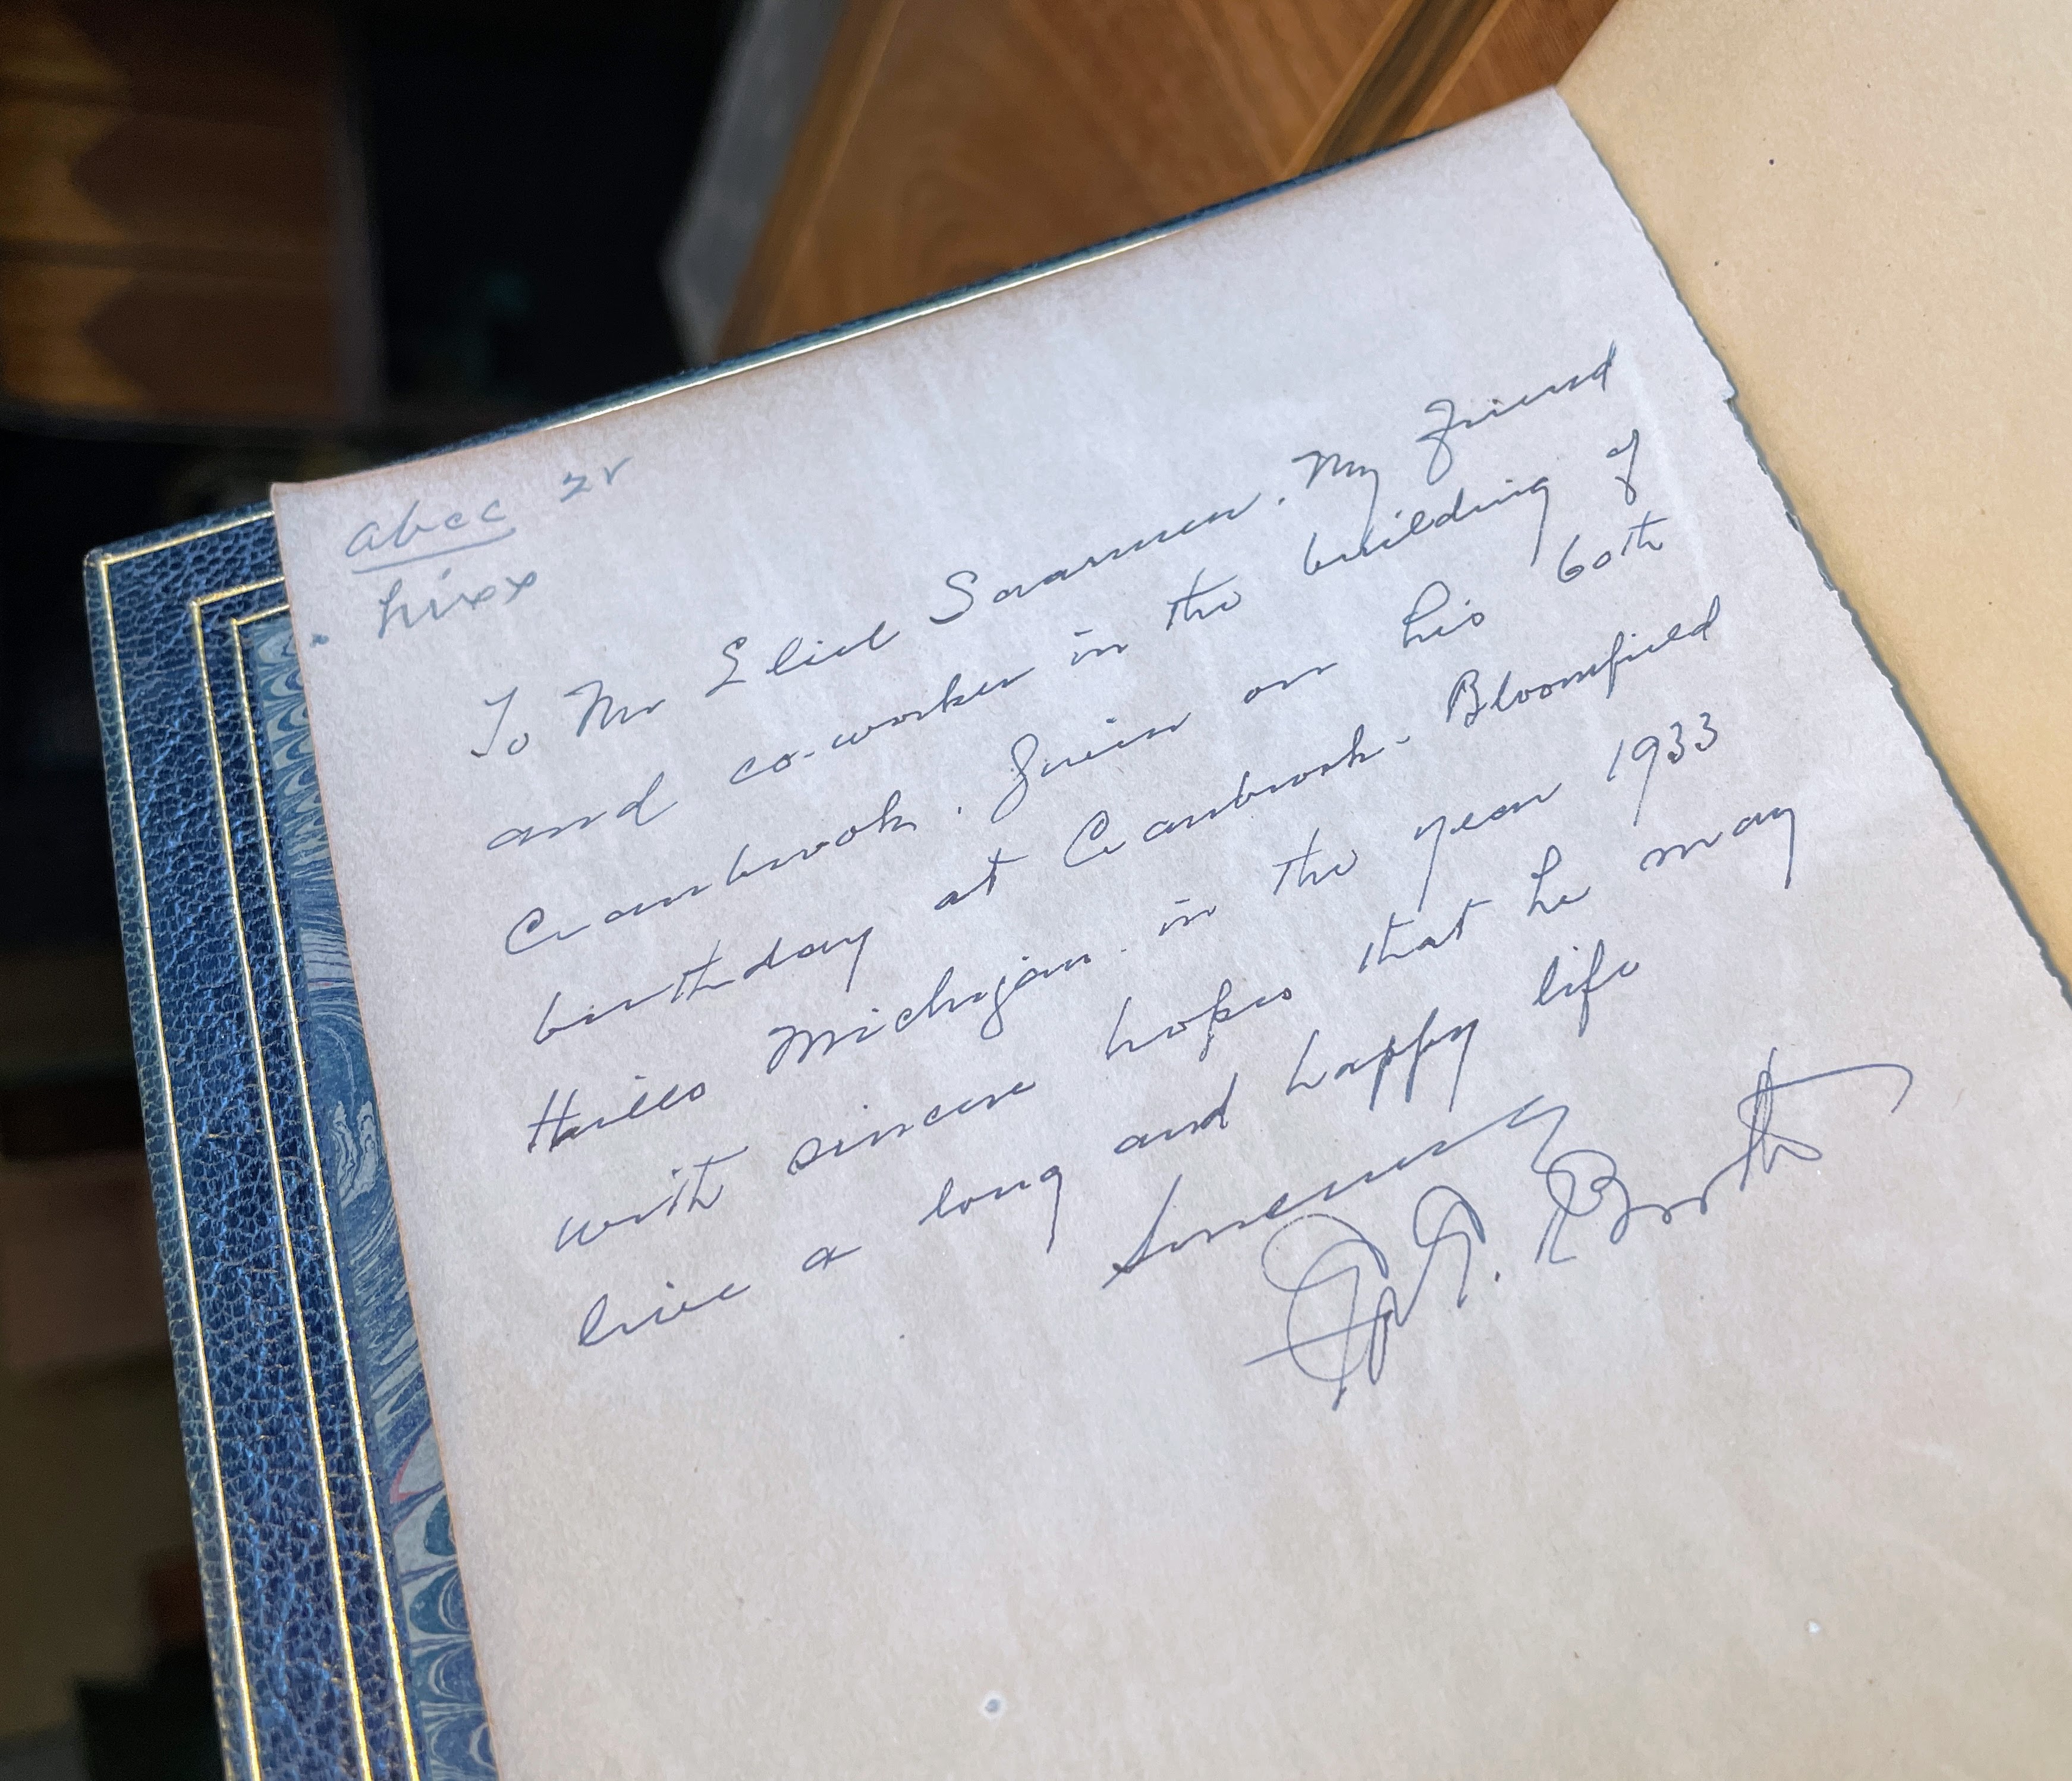 abec zr
hixx
To Mr Eliel Saarinen. My friend
and co-worker in the building of
Cranbrook. Given on his 60th
birthday at Cranbrook. Bloomfield
Hills Michigan. in the year 1933
with sincere hopes that he may
live a long and happy life
Sincerely
G. G. Booth